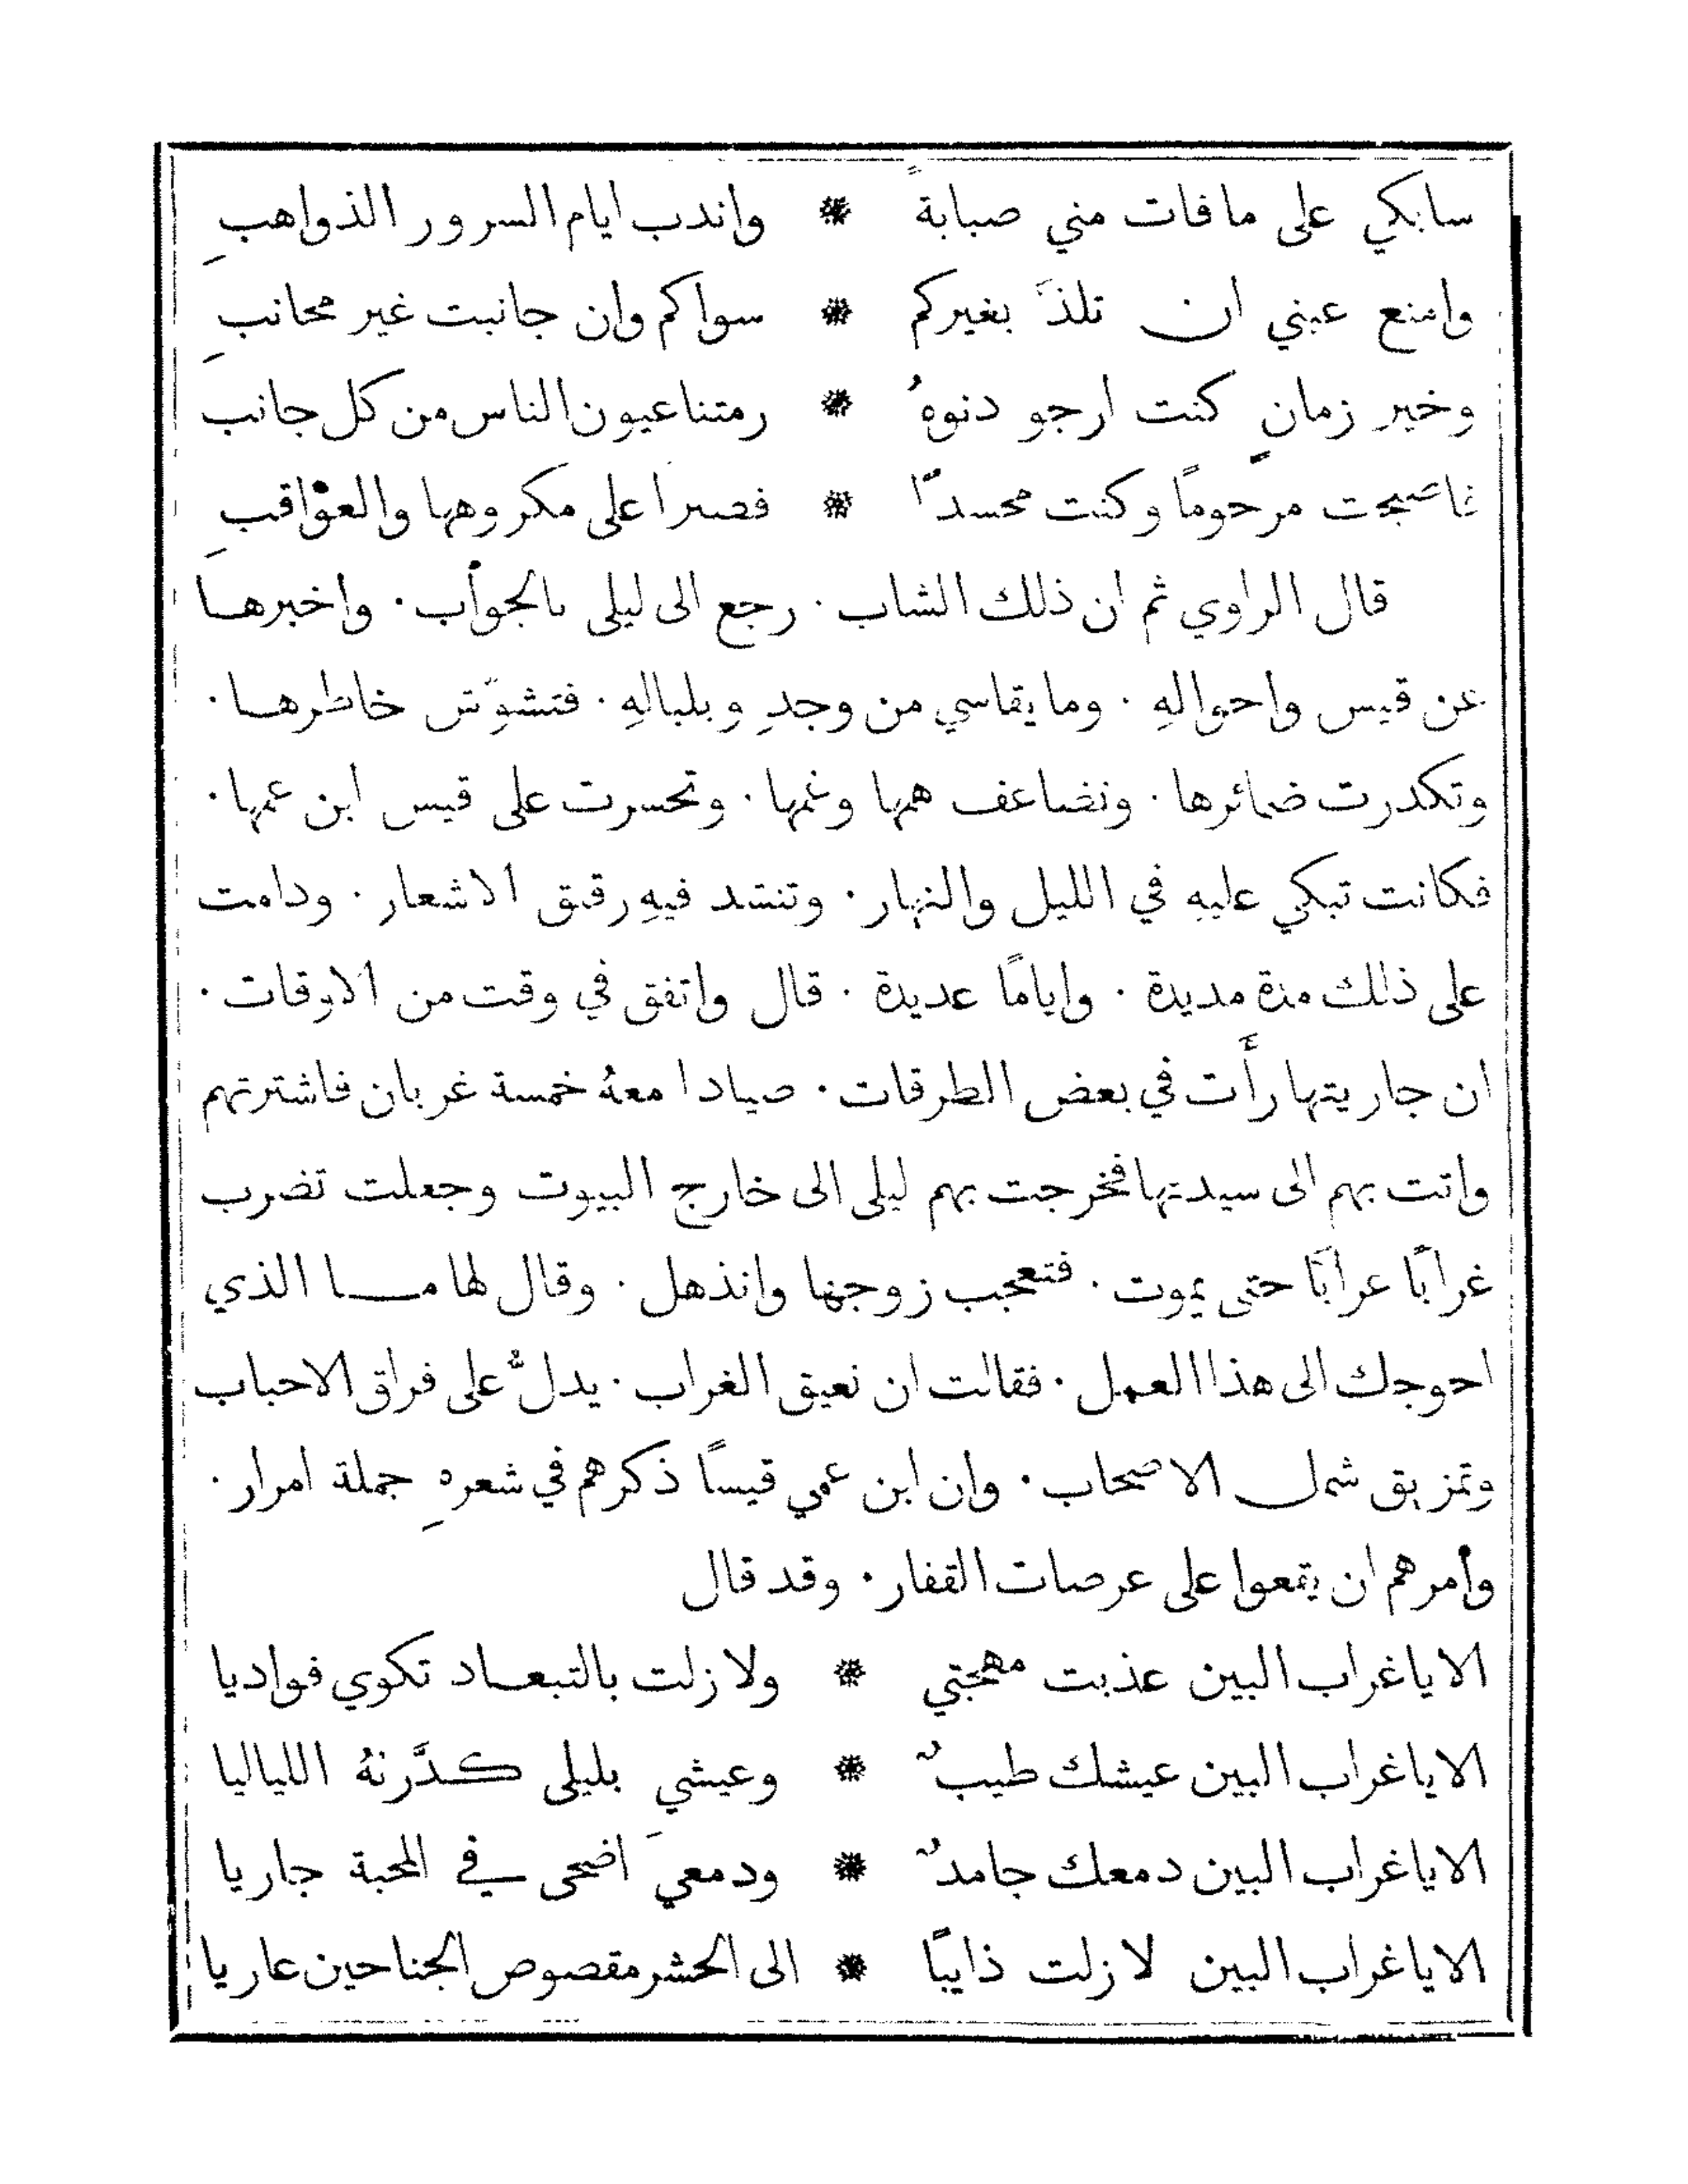 سابكي على مافات مني صبابةً * واندب ايام السرور الذواهبِ
وامنع عيني ان تلذَّ بغيركم * سواكم وان جانبت غير مجانبِ
وخير زمانٍ كنت ارجو دنوهُ * رمتنا عيون الناس من كل جانب
فاصبحت مرحوماً وكنت محسداً * فصبرا على مكروهها والعواقبِ
قال الراوي ثم ان ذلك الشاب · رجع الى ليلى بالجواب · واخبرها
عن قيس واحوالهِ · وما يقاسي من وجدِ وبلبالهِ · فتشوَّش خاطرها ·
وتكدرت ضمائرها · وتضاعف همها وغمها · وتحسرت على قيس ابن عمها ·
فكانت تبكي عليهِ في الليل والنهار · وتنشد فيهِ رقيق الاشعار · ودامت
على ذلك مدة مديدة · واياماً عديدة · قال واتفق في وقت من الاوقات ·
ان جاريتها رأَت في بعض الطرقات · صيادا معهُ خمسة غربان فاشترتهم
واتت بهم الى سيدتها فخرجت بهم ليلى الى خارج البيوت وجعلت تضرب
غراباً غراباً حتى يموت · فتعجب زوجها وانذهل · وقال لها مـا الذي
احوجك الى هذا العمل · فقالت ان نعيق الغراب · يدلُّ على فراق الاحباب
وتمزيق شمل الاصحاب · وان ابن عمي قيساً ذكرهم في شعرهِ جملة امرار ·
وأمرهم ان يقعوا على عرصات القفار · وقد قال
الا ياغراب البين عذبت مهجتي * ولا زلت بالتبعـاد تكوي فواديا
الا ياغراب البين عيشك طيبٌ * وعيشي بليلى كـدَّرتهُ اللياليا
الا ياغراب البين دمعك جامدٌ * ودمعيَ اضحى في المحبة جاريا
الا ياغراب البين لا زلت ذايباً * الى الحشر مقصوص الجناحين عاريا